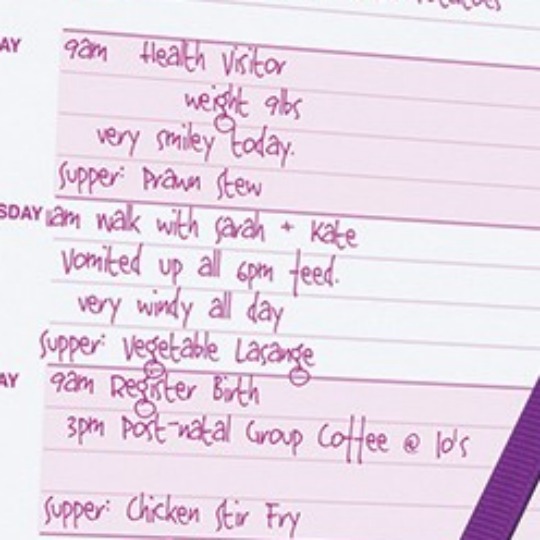 AY
9am Health Visitor
weight 9lbs
very smiley today.
Supper: Prawn Stew
SDAY 11am walk with Sarah + Kate
Vomited up all 6pm feed.
very windy all day
Supper: Vegetable Lasange
AY
9am Register Birth
3pm Post-natal Group Coffee @ Jo's
Supper: Chicken Stir Fry